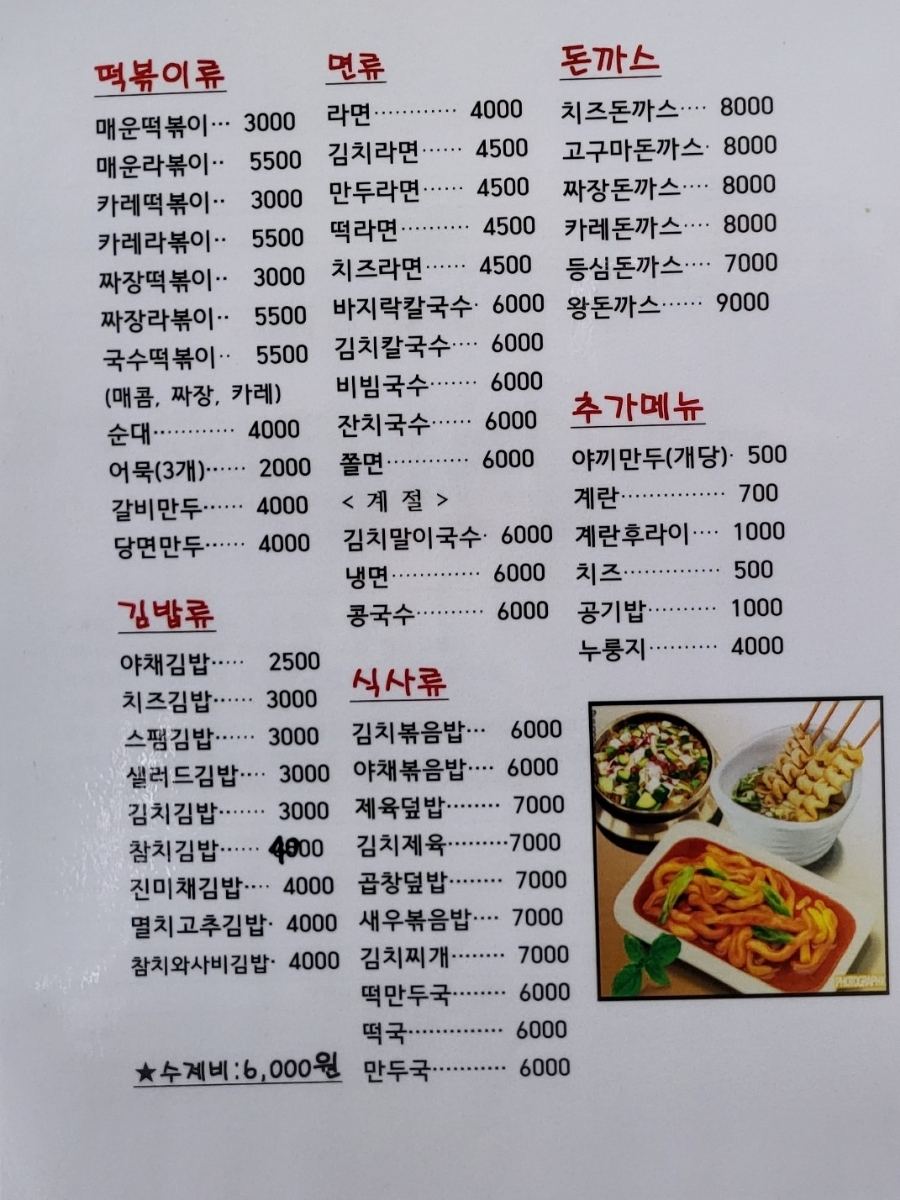 떡볶이류
매운떡볶이··· 3000
매운라볶이·· 5500
카레떡볶이·· 3000
카레라볶이·· 5500
짜장떡볶이·· 3000
짜장라볶이·· 5500
국수떡볶이·· 5500
(매콤, 짜장, 카레)
순대············ 4000
어묵(3개)······ 2000
갈비만두······ 4000
당면만두······ 4000
김밥류
야채김밥····· 2500
치즈김밥······ 3000
스팸김밥······ 3000
샐러드김밥···· 3000
김치김밥······· 3000
참치김밥······ 4000
진미채김밥···· 4000
멸치고추김밥· 4000
참치와사비김밥· 4000
★수제비:6,000원
면류
라면············ 4000
김치라면······ 4500
만두라면······ 4500
떡라면·········· 4500
치즈라면······ 4500
바지락칼국수· 6000
김치칼국수···· 6000
비빔국수······· 6000
잔치국수······ 6000
쫄면············ 6000
< 계 절 >
김치말이국수· 6000
냉면············· 6000
콩국수·········· 6000
식사류
김치볶음밥··· 6000
야채볶음밥···· 6000
제육덮밥········ 7000
김치제육·········7000
곱창덮밥········ 7000
새우볶음밥···· 7000
김치찌개········ 7000
떡만두국········ 6000
떡국·············· 6000
만두국··········· 6000
돈까스
치즈돈까스···· 8000
고구마돈까스· 8000
짜장돈까스···· 8000
카레돈까스···· 8000
등심돈까스···· 7000
왕돈까스······ 9000
추가메뉴
야끼만두(개당)· 500
계란··············· 700
계란후라이···· 1000
치즈·············· 500
공기밥·········· 1000
누룽지·········· 4000